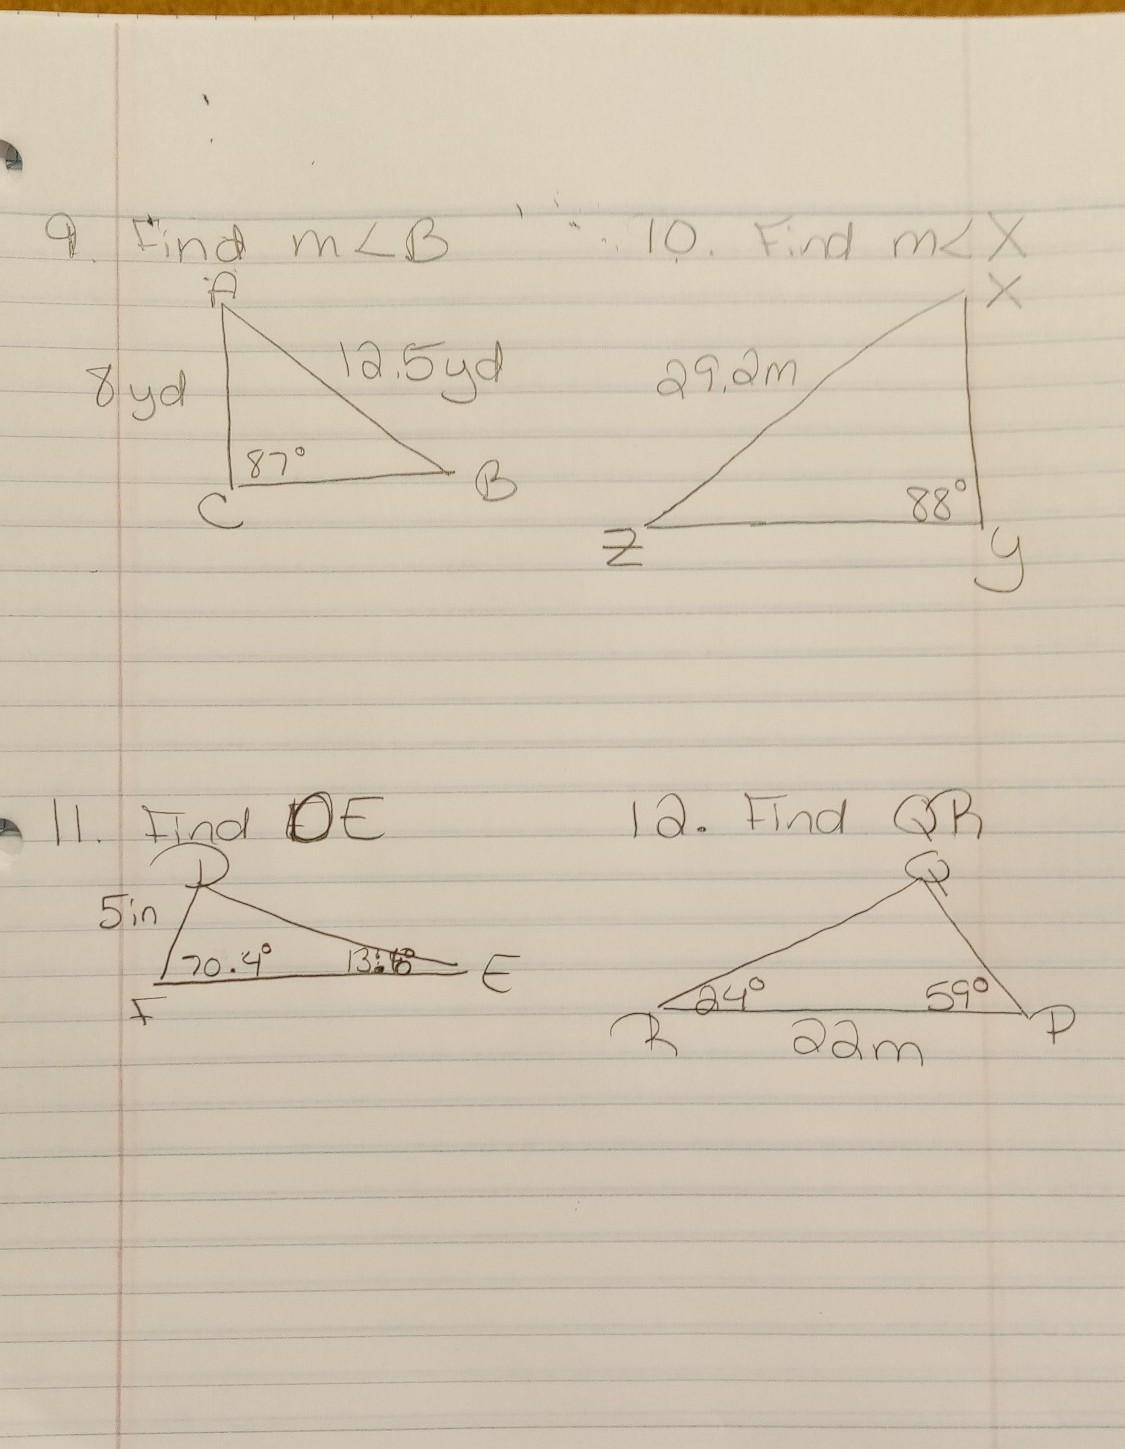 9. Find m∠B
A
8yd
12.5yd
87°
C
B
10. Find m∠X
X
29.2m
88°
Z
y
11. Find DE
D
5in
70.4°
F
E
12. Find QR
Q
24°
59°
R
P
22m